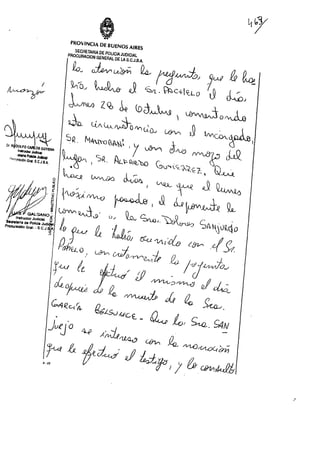 469
PROVINCIA DE BUENOS AIRES
SECRETARIA DE POLICIA JUDICIAL
PROCURACION GENERAL DE LA S.C.J.B.A.
la atención la pregunta, que le ha
hecho el Sr. PACHELO el día
lunes 28 de Octubre, comentando
esta circunstancia con el encargado,
SR. y con otro mozo del
lugar, SR. ALFREDO Que
hace unos días, cree que el lunes
próximo pasado, el deponente le
comentó a la Sra. Dolores SANJURJO
lo que le había ocurrido con el Sr.
PACHELO, concretamente la pregunta
que le efectuó el mismo el día
después de la muerte de la Sra.
GARCÍA BELSUNCE.- Que la Sra. SAN
JURJO se interesó con la narración
que le efectuó el testigo, y le consultó
Instructor Judicial
Procuración Gral. - S.C.J.B.A.
GALDIANO
Instructor Judicial
Secretaría de Policía Judicial
Procuración Gral. - S.C.J.B.A.
MINISTERIO PUBLICO